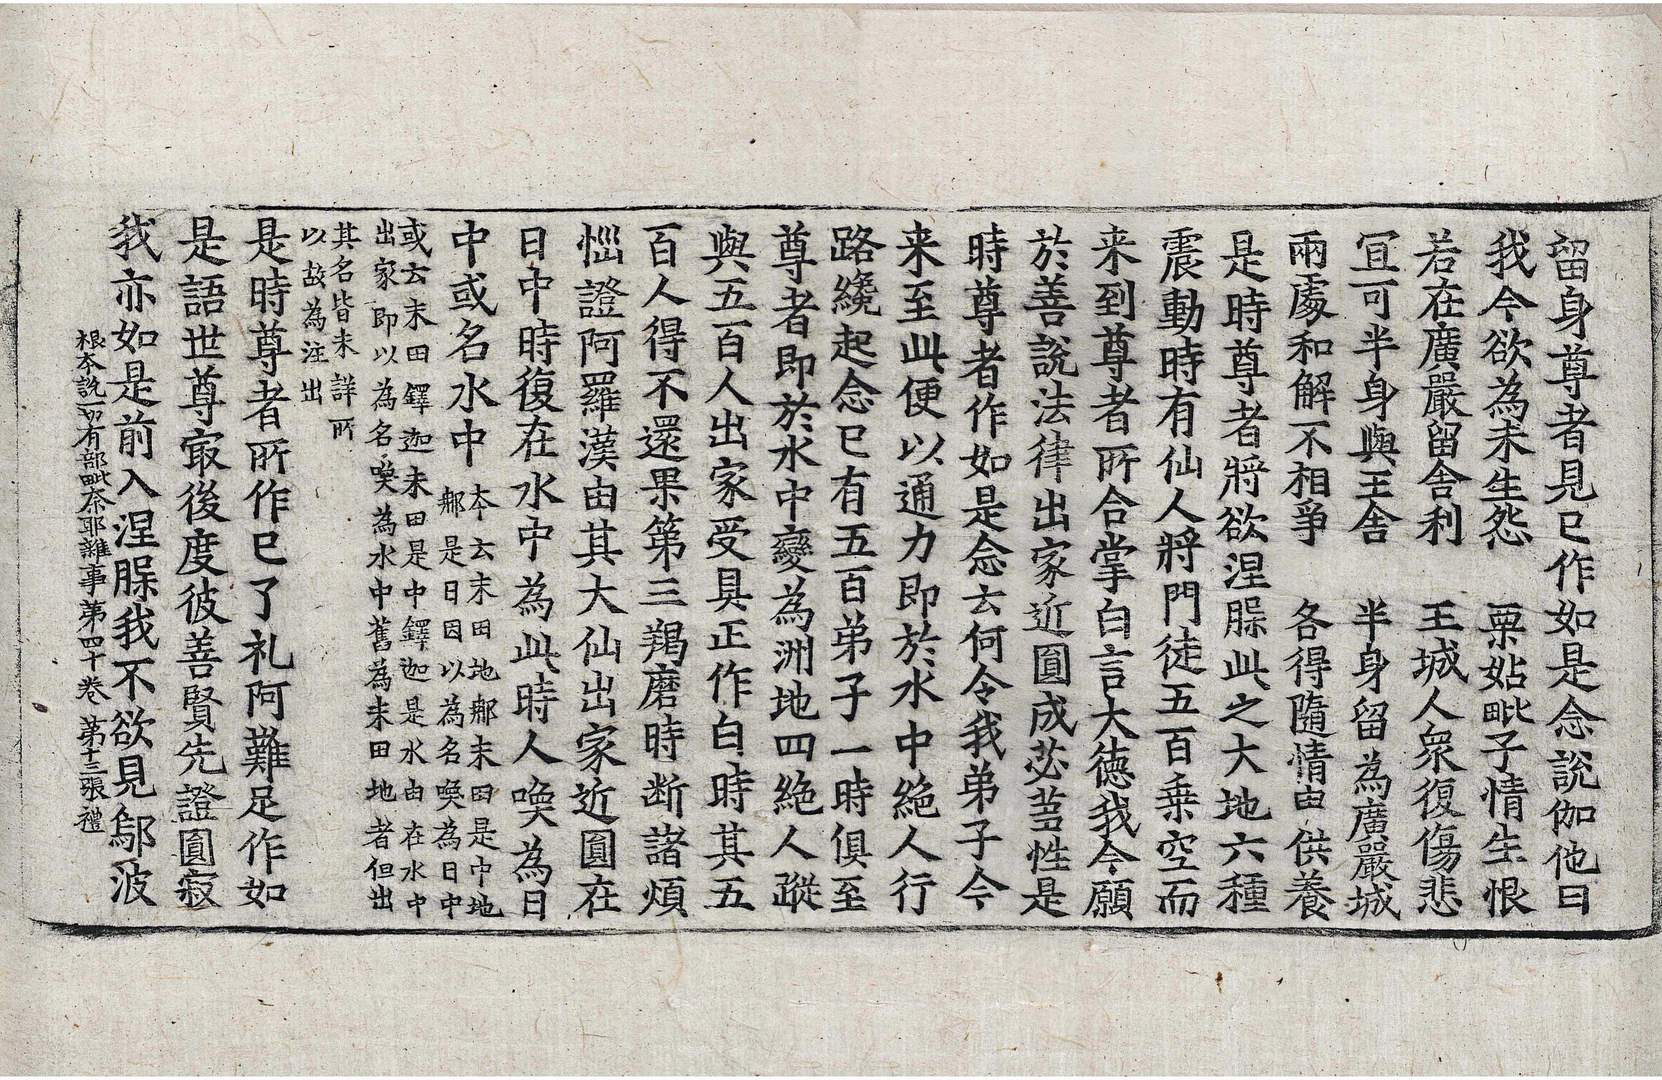 留身尊者見已作如是念說伽他曰
我今欲為未生怨　栗姑毗子情生恨
若在廣嚴留舍利　王城人衆復傷悲
冝可半身與王舍　半身留為廣嚴城
兩處和解不相爭　各得隨情申供養
是時尊者將欲涅槃此之大地六種
震動時有仙人將門徒五百乗空而
来到尊者所合掌白言大德我今願
於善說法律出家近圓成苾芻性是
時尊者作如是念云何令我弟子今
来至此便以通力即於水中絶人行
路纔起念已有五百弟子一時俱至
尊者即於水中變為洲地四絶人蹤
與五百人出家受具正作白時其五
百人得不還果第三羯磨時断諸煩
惱證阿羅漢由其大仙出家近圓在
日中時復在水中為此時人喚為日
中或名水中 本云末田地那末田是中地
那是日因以為名喚為日中
或云末田鐸迦末田是中鐸迦是水由在水中
出家即以為名喚為水中舊為末田地者但出
其名皆未詳所
以故為注出
是時尊者所作已了礼阿難足作如
是語世尊㝡後度彼善賢先證圓寂
我亦如是前入涅槃我不欲見鄔波
根本說一切有部毗奈耶雜事第四十卷　第十三張　禮